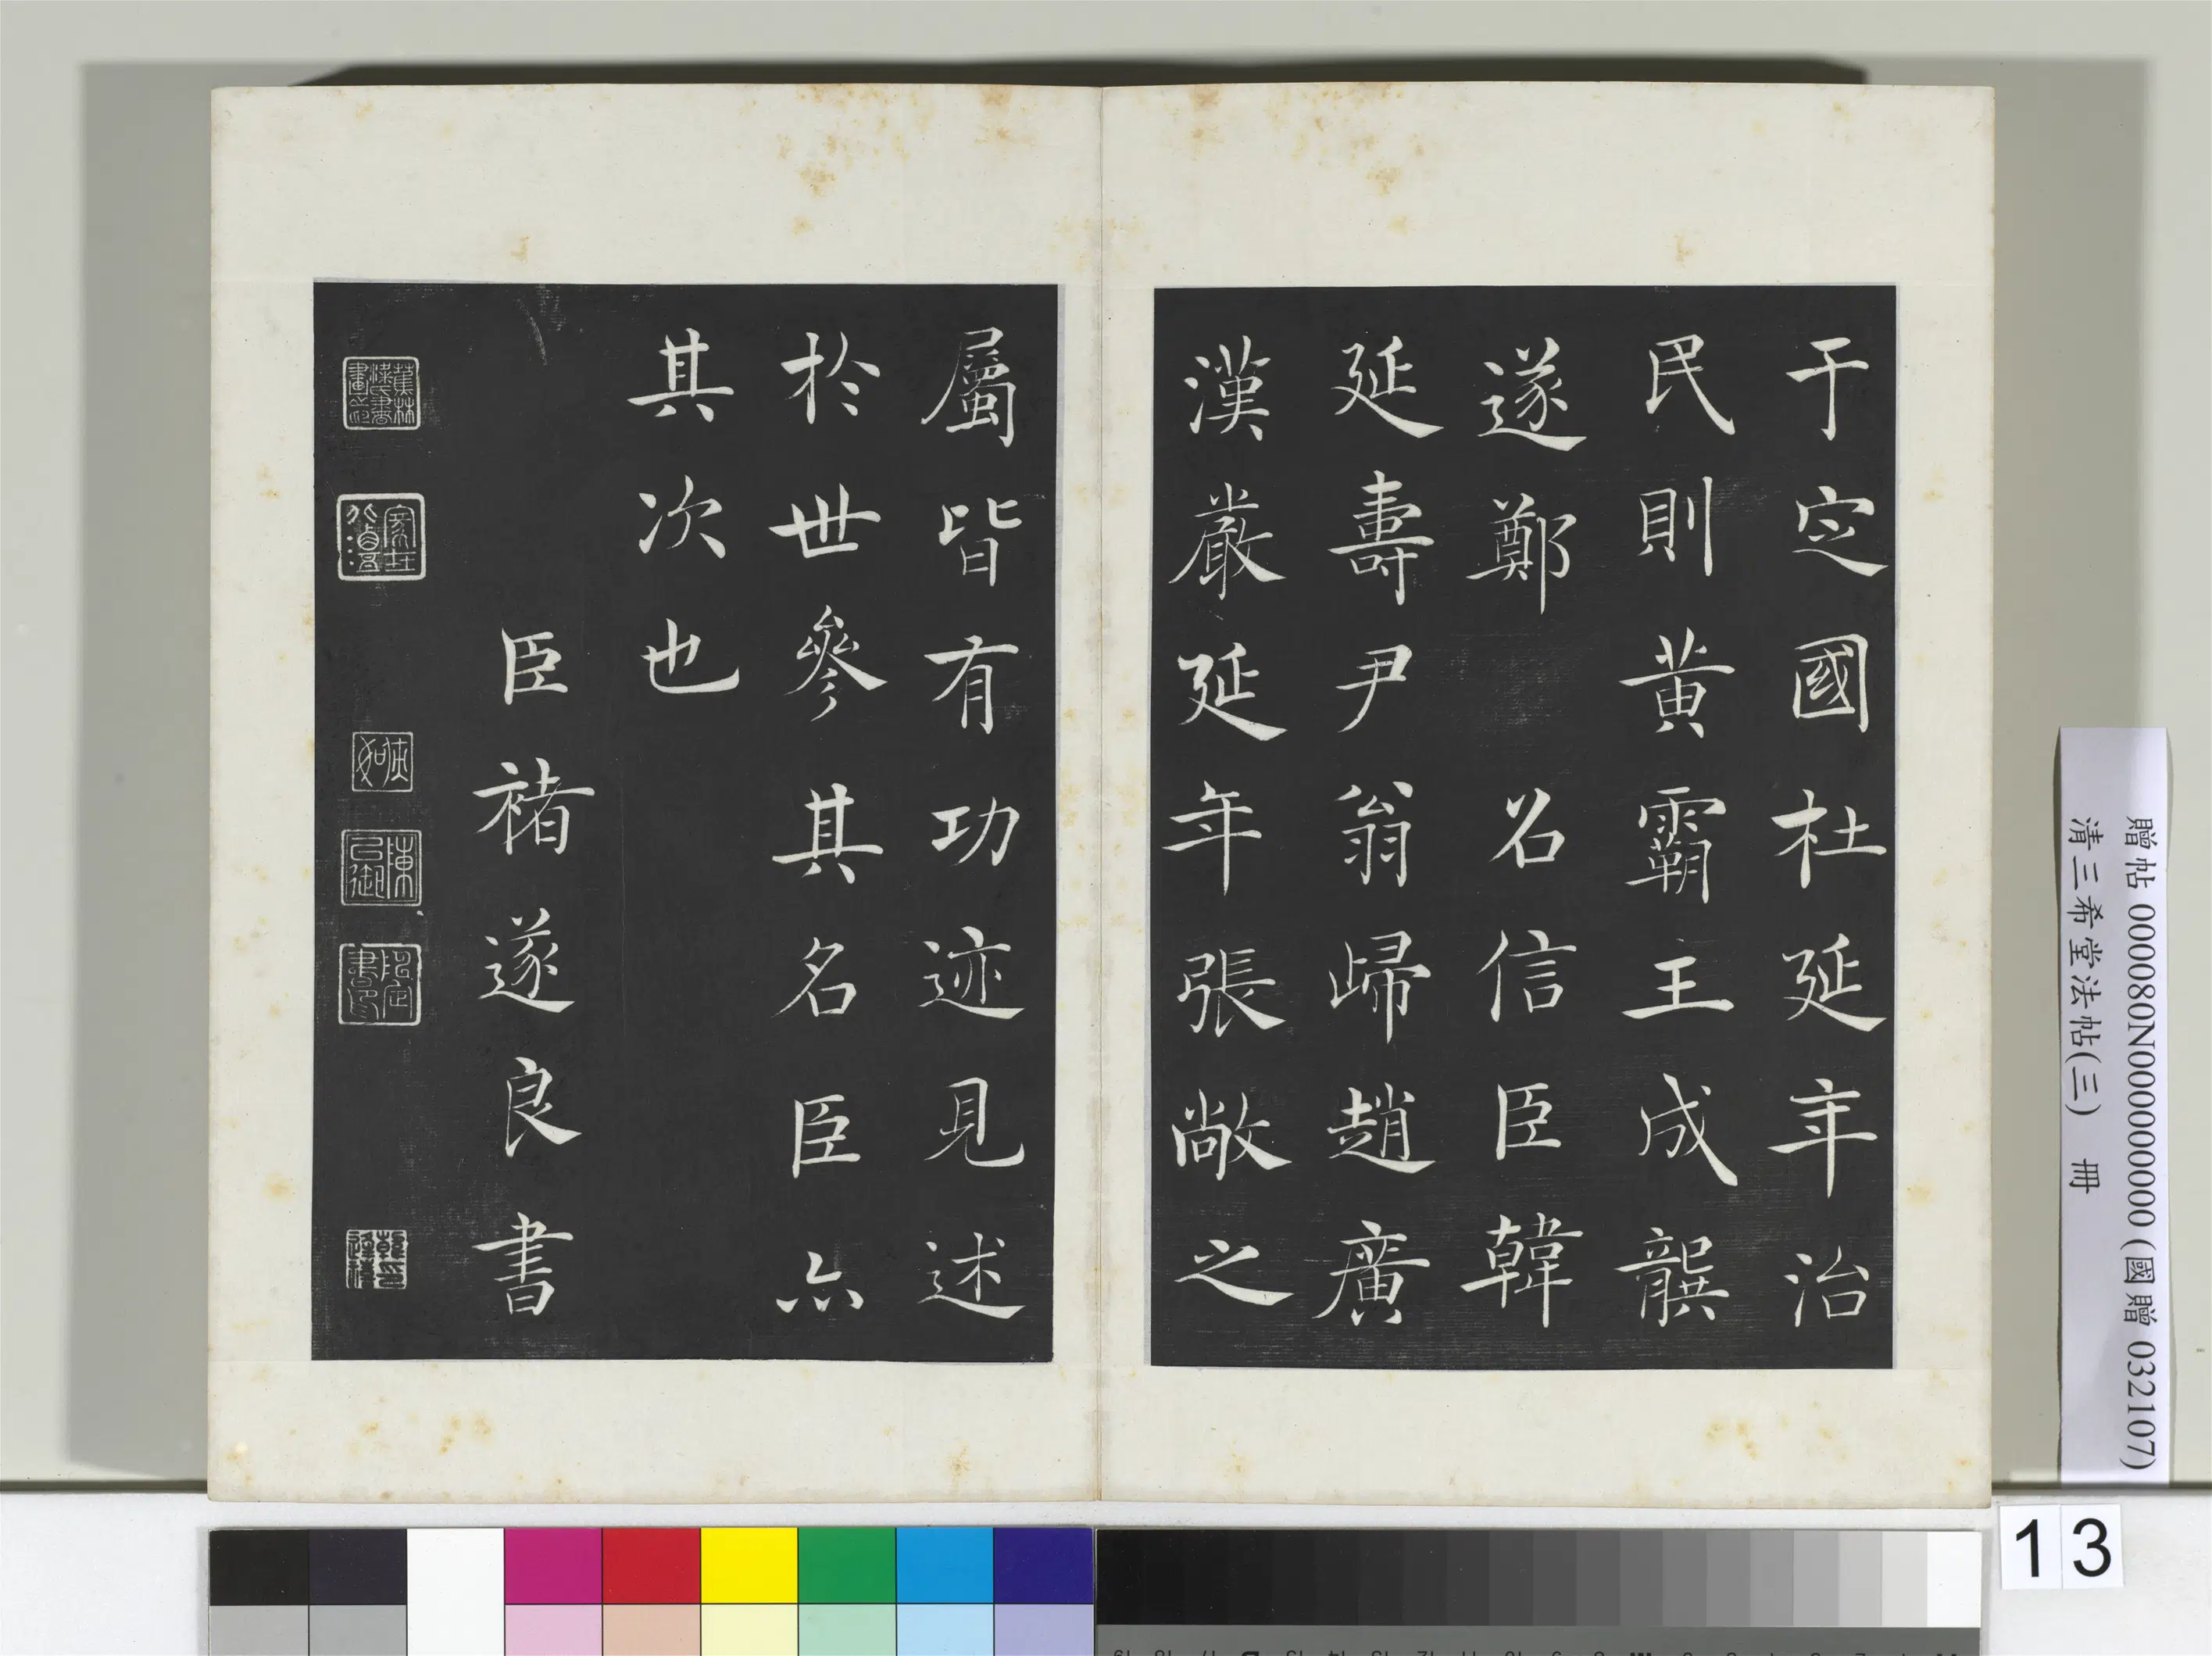 于定國杜延年治
民則黄霸王成龔
遂鄭 召信臣韓
延壽尹翁歸趙廣
漢嚴延年張敞之
屬皆有功迹見述
於世參其名臣亦
其次也
臣褚遂良書
蕉林梁氏書畫之印
贈帖 000080N000000000 (國贈 032107)
清三希堂法帖(三) 冊
13